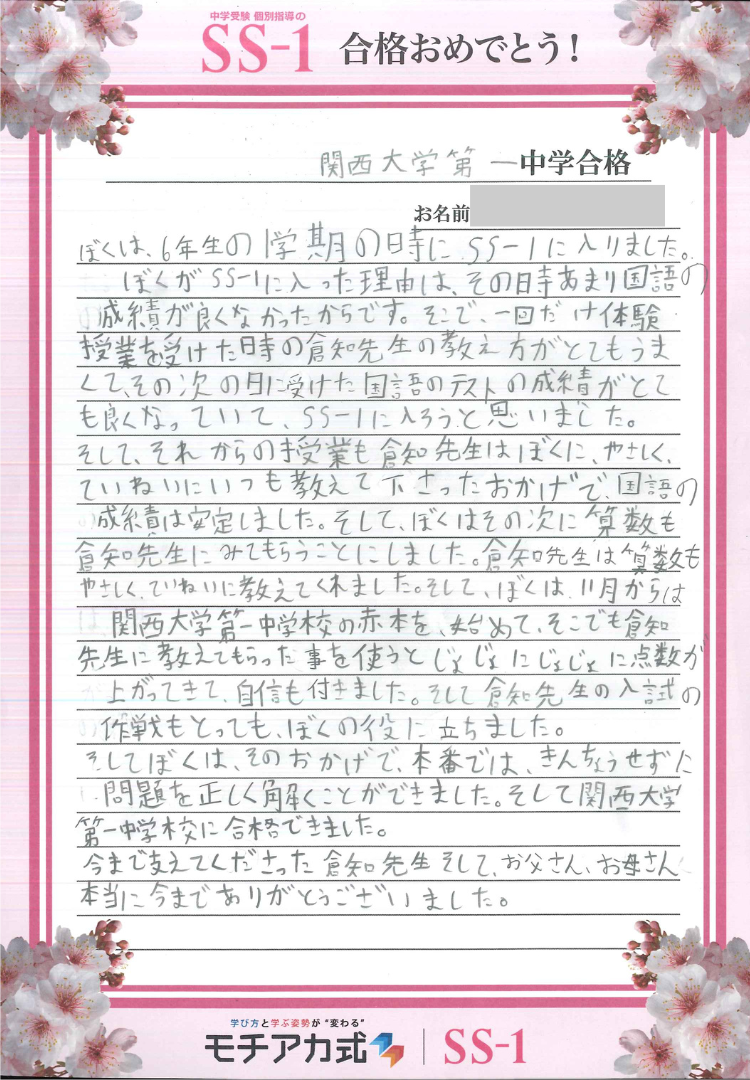 中学受験 個別指導の
SS-1 合格おめでとう!
関西大学第一中学合格
お名前
ぼくは、6年生の1学期の時にSS-1に入りました。
ぼくがSS-1に入った理由は、その日寺あまり国語の
成績が良くなかったからです。そこで、一回だけ体験
授業を受けた時の倉知先生の教え方がとてもうま
くて、その次の日に受けた国語のテストの成績がとて
も良くなっていて、SS-1に入ろうと思いました。
そして、それからの授業も倉知先生はぼくに、やさしく、
ていねいにいつも教えて下さったおかげで、国語の
成績は安定しました。そして、ぼくはその次に算数も
倉知先生にみてもらうことにしました。倉知先生は算数も
やさしく、ていねいに教えてくれました。そして、ぼくは、11月からは
関西大学第一中学校の赤本を、始めて、そこでも倉知
先生に教えてもらった事を使うとじょじょにじょじょに点数が
上がってきて、自信も付きました。そして倉知先生の入試の
作戦もとっても、ぼくの役に立ちました。
そしてぼくは、そのおかげで、本番では、きんちょうせずに
問題を正しく解くことができました。そして関西大学
第一中学校に合格できました。
今まで支えてくださった倉知先生そして、お父さん、お母さん
本当に今までありがとうございました。
学び方と学ぶ姿勢が“変わる”
モチアカ式 SS-1